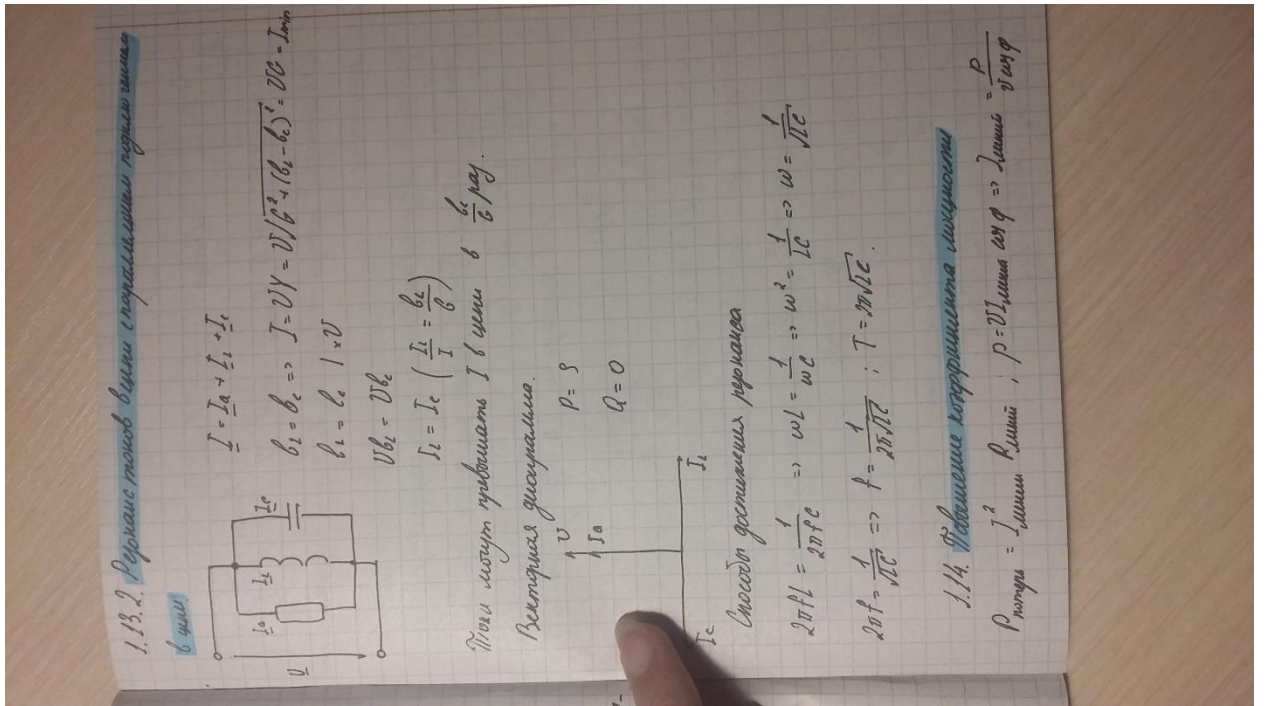 1.13.2. Резонанс токов в цепи с параллельным
в цепи
U
Ia
IL
Ic
I = Ia + IL + Ic
bL = bc => I = UY = U√(G²+(bL-bc)²) = UG = Imin
bL = bc | ×U
UbL = Ubc
IL = Ic (IL/I = bL/G)
Токи могут превышать I в цепи в bc/G раз.
Векторная диаграмма.
U
Ia
Ic
IL
P = S
Q = 0
Способы достижения резонанса
2πfL = 1/2πfC => ωL = 1/ωC => ω² = 1/LC => ω = 1/√LC
2πf = 1/√LC => f = 1/2π√LC ; T = 2π√LC.
1.14. Повышение коэффициента мощности
Pпотерь = I²линии Rлиний ; P = UIлинии cosφ => Iлиний = P/Ucosφ